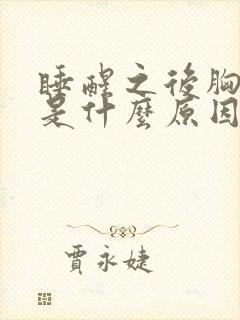 睡醒之後胸
是什麼原因
賈永婕